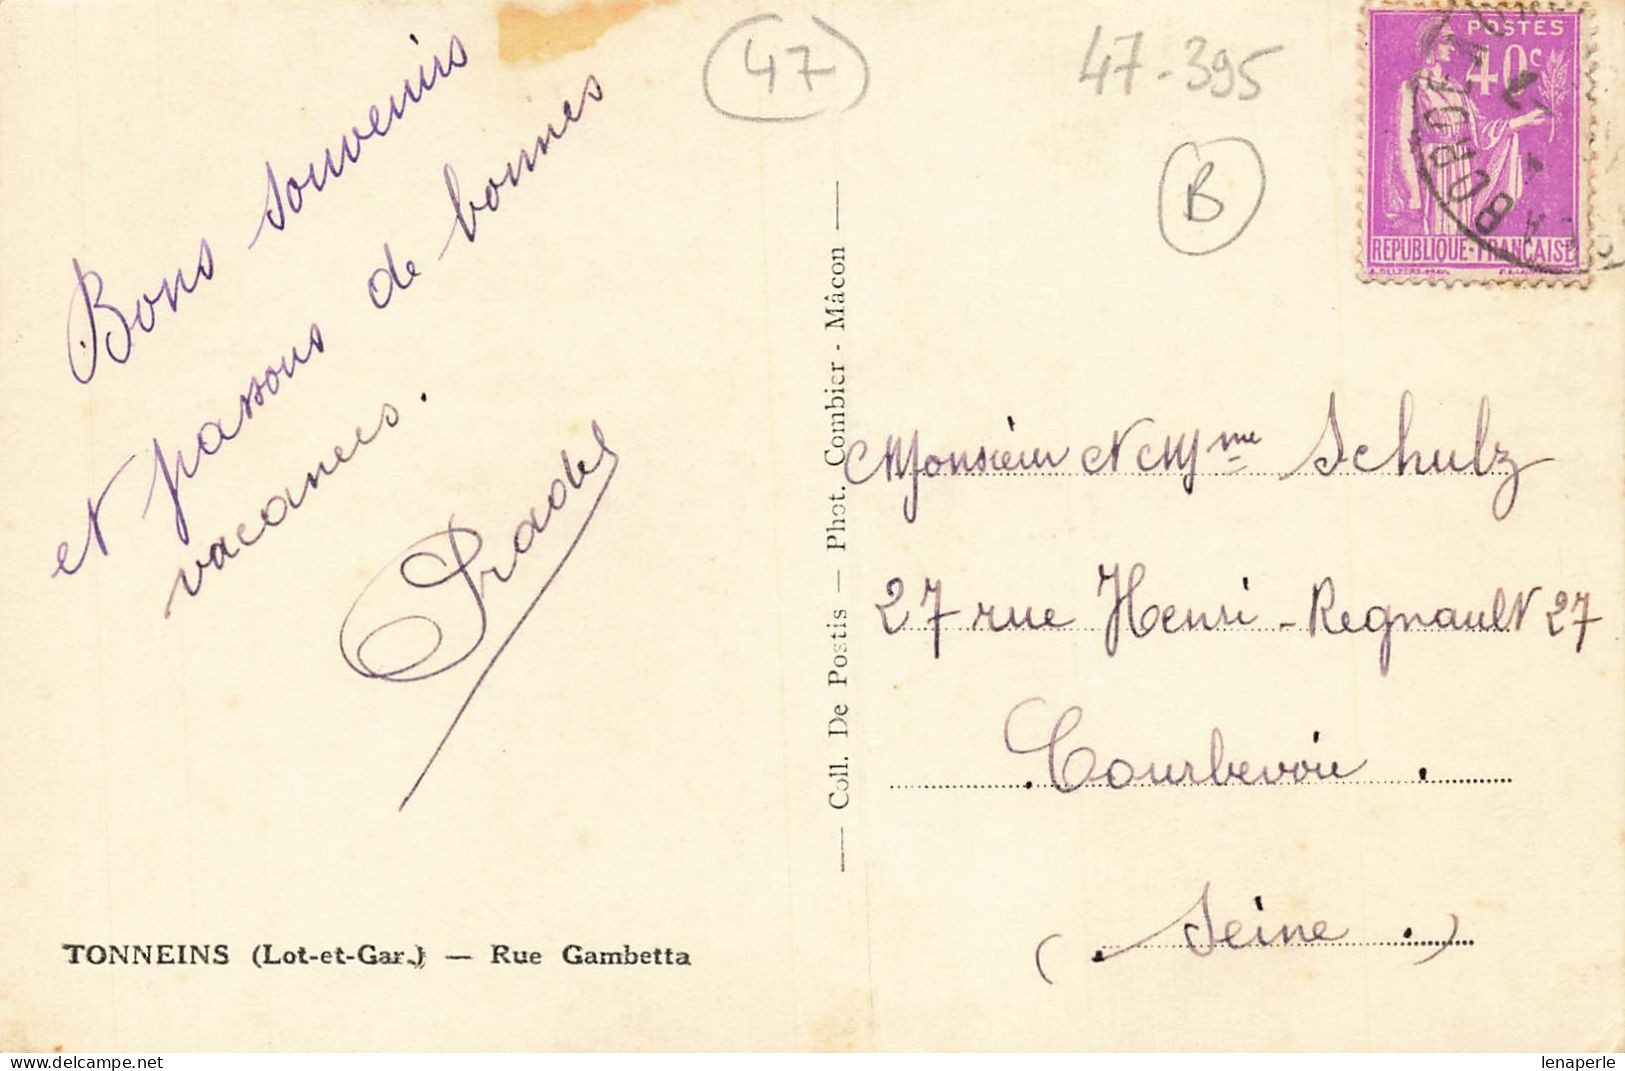 47
47-395
B
POSTES
40c
REPUBLIQUE-FRANÇAISE
BORDEA
Bons souvenirs
et passons de bonnes
vacances.
Prades
Coll. De Postis — Phot. Combier - Mâcon
Monsieur et Mme Schulz
27 rue Henri-Regnault 27
Courbevoie.
(Seine.)
TONNEINS (Lot-et-Gar.) — Rue Gambetta
lenaperle